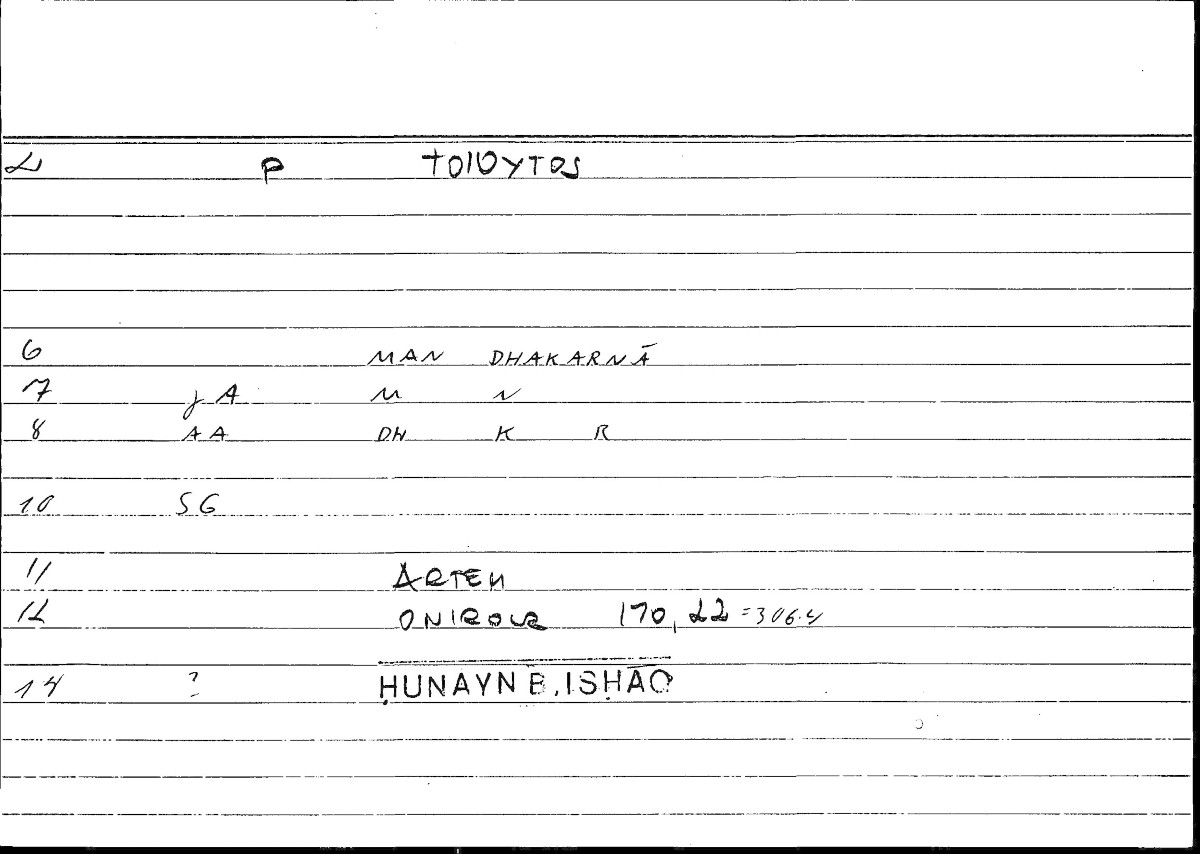 2 P τοιουτος
6 MAN DHAKARNĀ
7 jA M N
8 AA DH K R
10 SG
11 ARTEM
12 ONIROCR 170, 22 = 306.4
14 ? ḤUNAYN B. ISḤĀQ